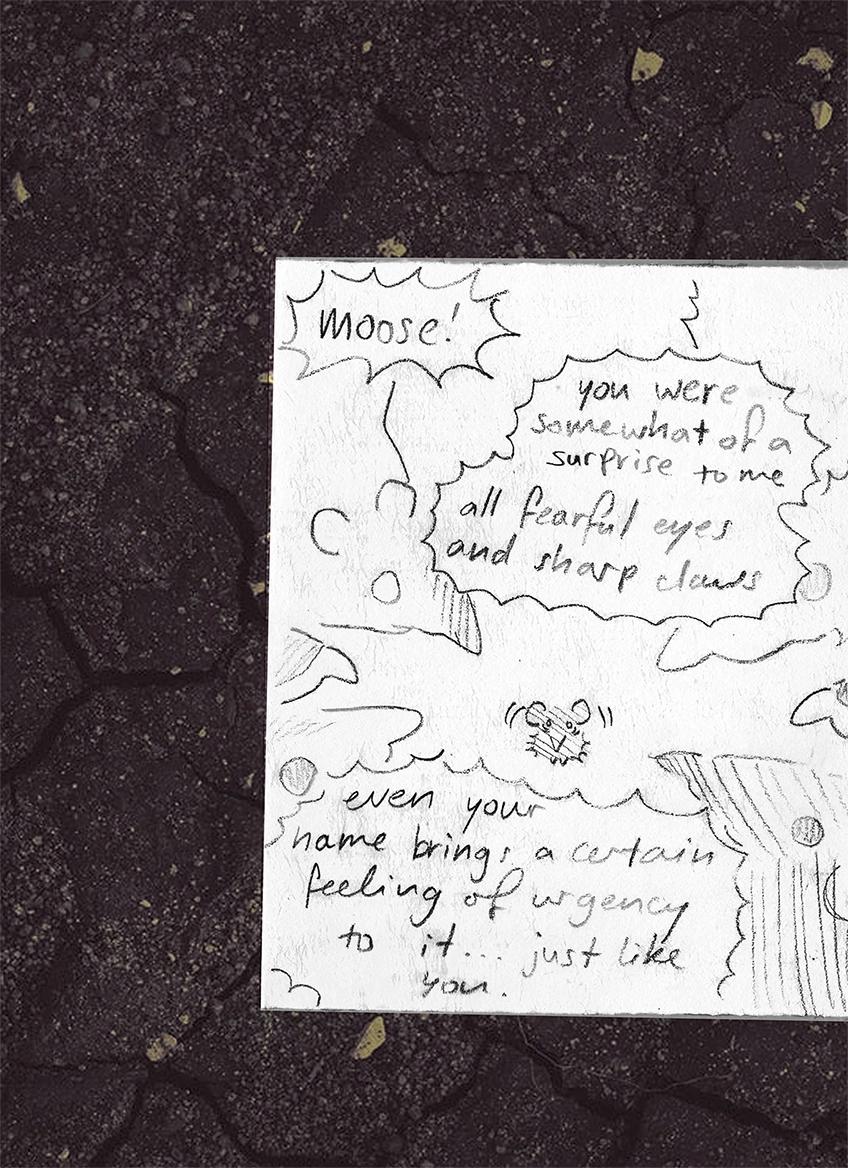 Moose!
you were
somewhat of a
surprise to me
all fearful eyes
and sharp claws
even your
name brings a certain
feeling of urgency
to it... just like
you.